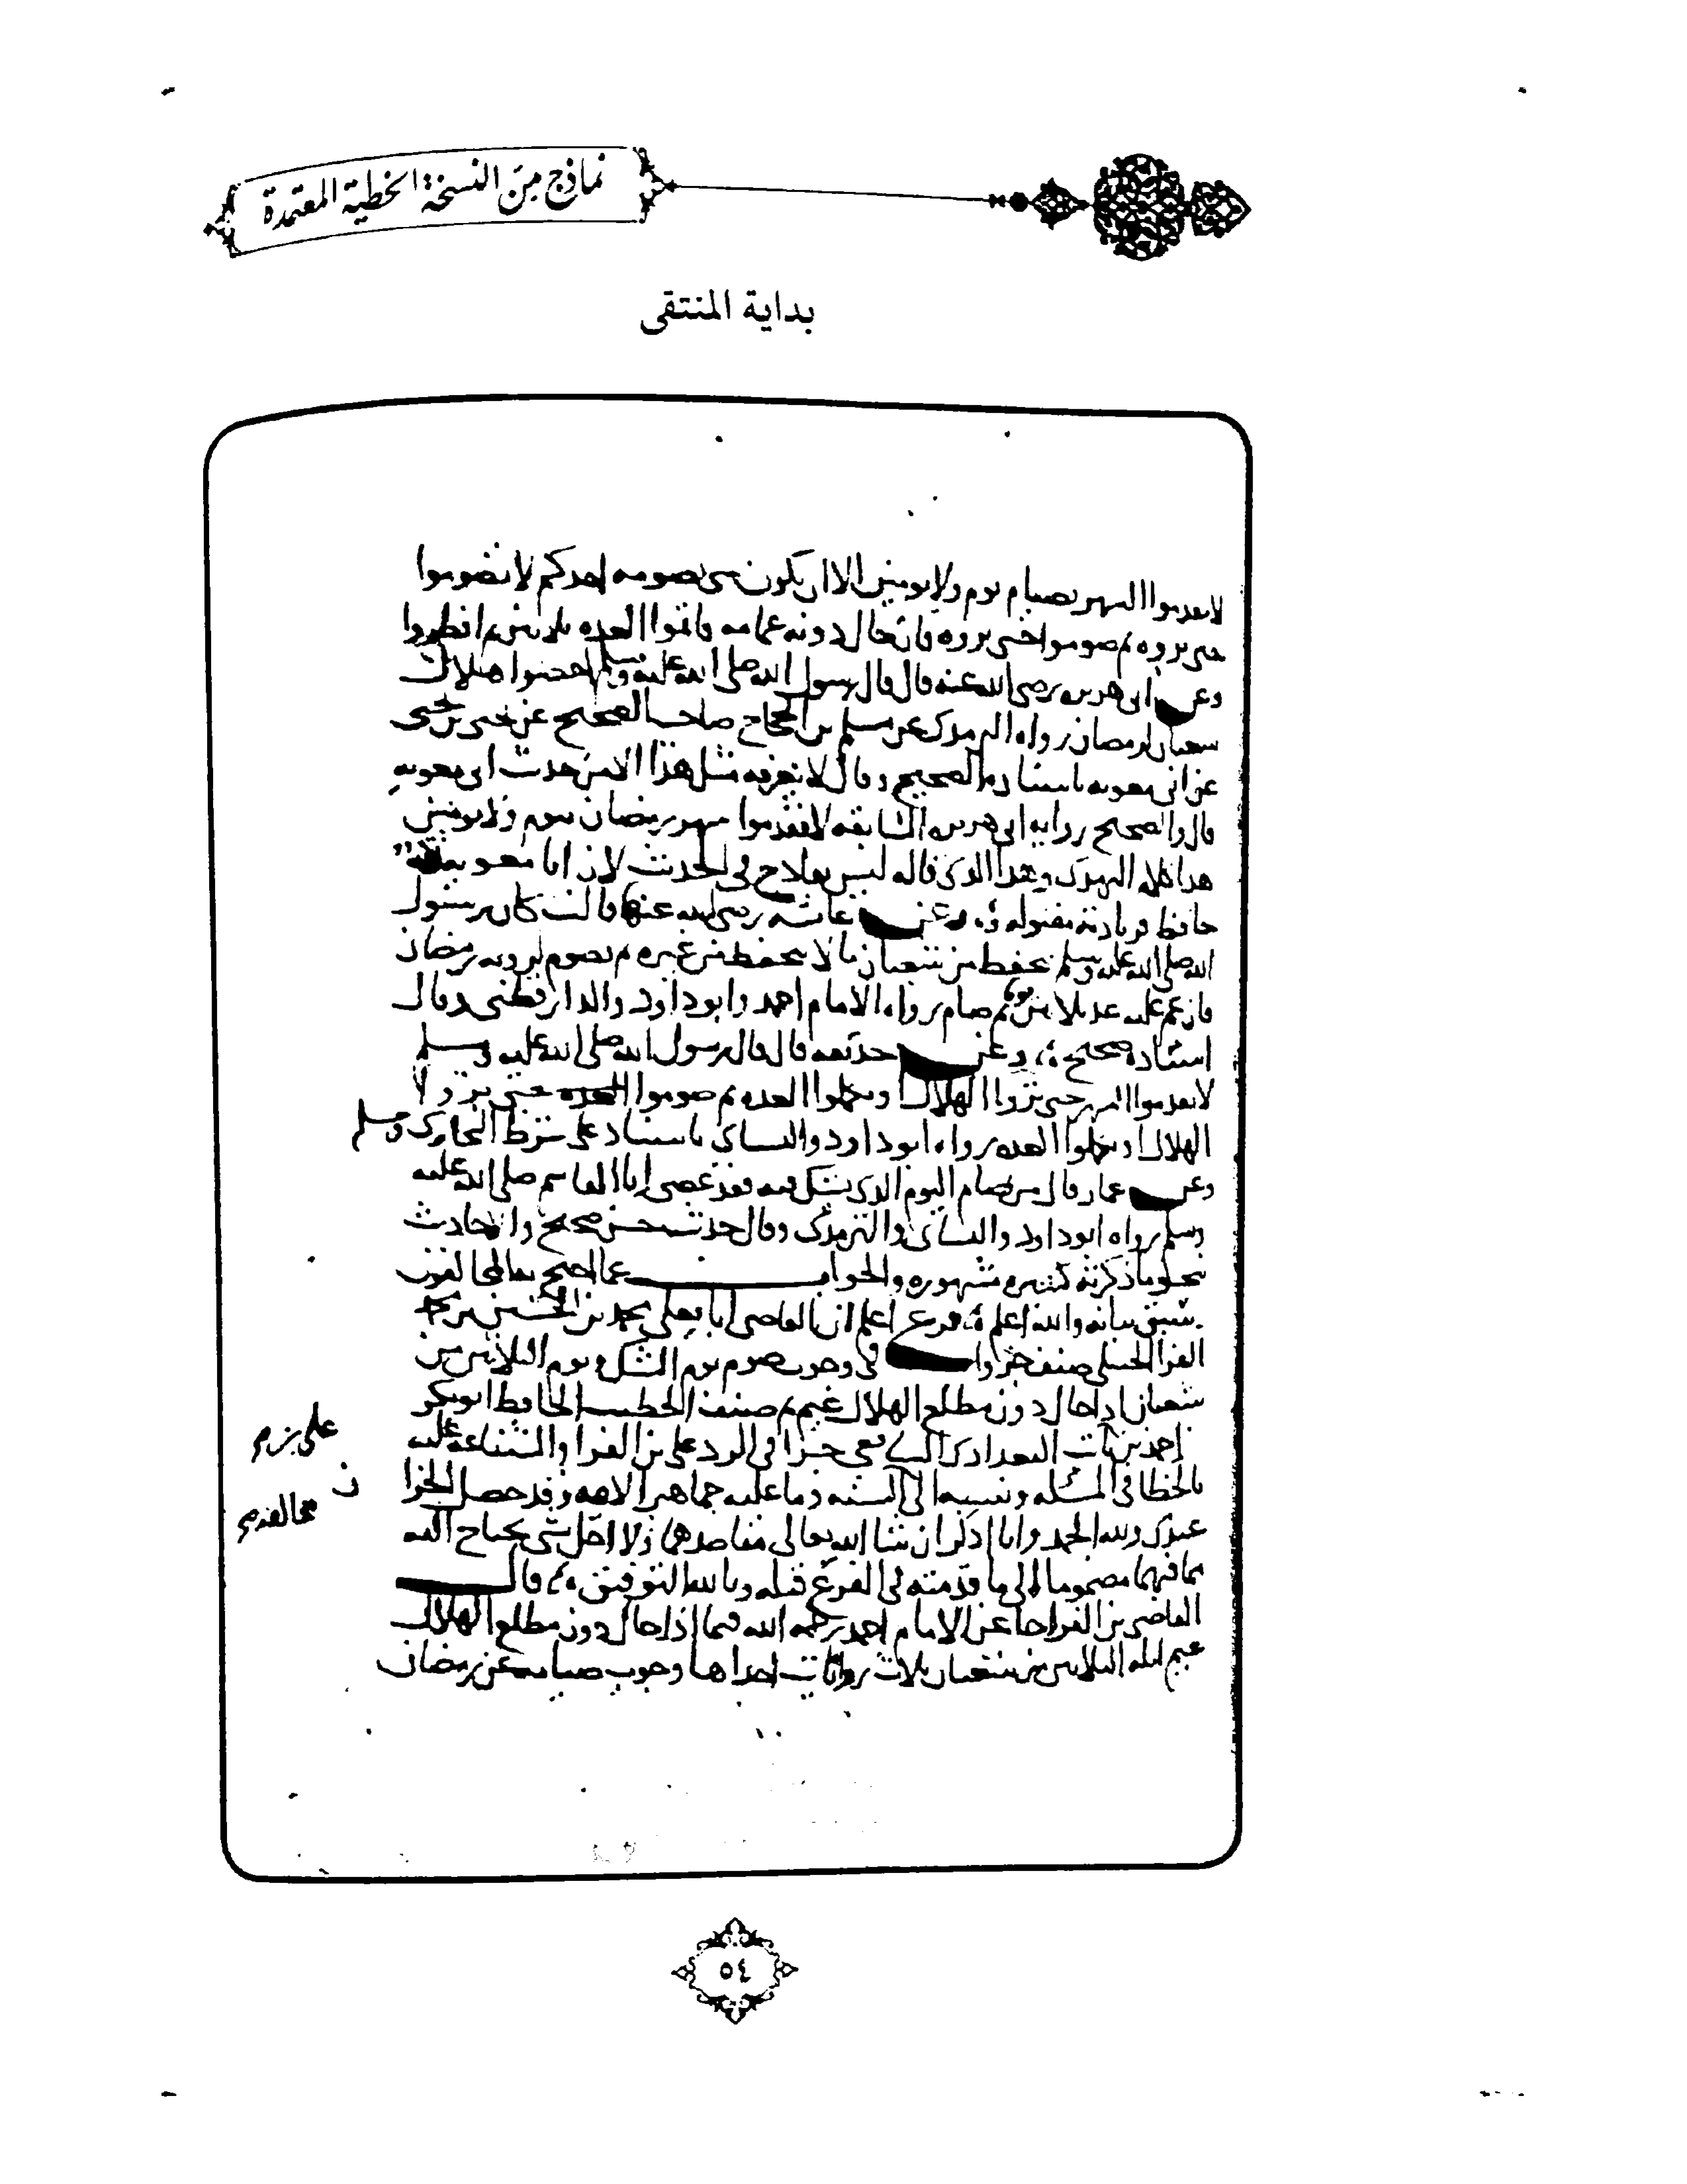 نماذج من النسخة الخطية المعتمدة
بداية المنتقى
لا تقدموا الشهر بصيام يوم ولا يومين الا ان يكون شي يصومه احدكم لا تصوموا
حتى تروه ثم صوموا حتى تروه فان حال دونه غمامه فاتموا العده ثلاثين ثم افطروا
وعن ابي هريره رضي الله عنه قال قال رسول الله صلى الله عليه وسلم احصوا هلال
شعبان لرمضان رواه الترمذي عن مسلم بن الحجاج صاحب الصحيح عن يحيى بن يحيى
عن ابي معويه باسناده الصحيح وقال لا نعرفه مثل هذا الا من حديث ابي معويه
قال والصحيح روايه ابي هريره السابقه لا تقدموا شهر رمضان بيوم ولا يومين
هذا كلام الترمذي وهذا الذي قاله ليس بقادح في الحديث لان ابا معويه ثقه
حافظ فزيادته مقبوله وعن عائشه رضي الله عنها قالت كان رسول
الله صلى الله عليه وسلم يتحفظ من شعبان ما لا يتحفظ من غيره ثم يصوم لرويه رمضان
فان غم عليه عد ثلاثين يوما ثم صام رواه الامام احمد وابو داود والدارقطني وقال
اسناده صحيح وعن حذيفه قال قال رسول الله صلى الله عليه وسلم
لا تقدموا الشهر حتى تروا الهلال او تكملوا العده ثم صوموا حتى تروا
الهلال او تكملوا العده رواه ابو داود والنسائي باسناد على شرط البخاري ومسلم
وعن عمار قال من صام اليوم الذي يشك فيه فقد عصى ابا القاسم صلى الله عليه
وسلم رواه ابو داود والنسائي والترمذي وقال حديث حسن صحيح والاحاديث
بنحو ما ذكرته كثيره مشهوره والجواب عما احتج به المخالفون
سبق بيانه والله اعلم فرع اعلم ان القاضي ابا يعلى محمد بن الحسين بن محمد
الفرا الحنبلي صنف جزوا في وجوب صوم يوم الشك وهو يوم الثلاثين من
شعبان اذا حال دون مطلع الهلال غيم ثم صنف الخطيب الحافظ ابو بكر
احمد بن ثابت البغدادي الشافعي جزا في الرد على بن الفرا والشناعه عليه
بالخطا في المسئله ونسبه الى السنه وما عليه جماهير الامه وقد حصل الجزا
عندي ولله الحمد وانا اذكر ان شا الله تعالى مقاصدهما ولا اخل بشي يحتاج اليه
مما فيهما مضموما الى ما قدمته في الفرع قبله وبالله التوفيق قال
القاضي بن الفرا جا عن الامام احمد رحمه الله فيما اذا حال دون مطلع الهلال
غيم ليله الثلاثين من شعبان ثلاث روايات احداها وجوب صيامه عن رمضان
٥٤